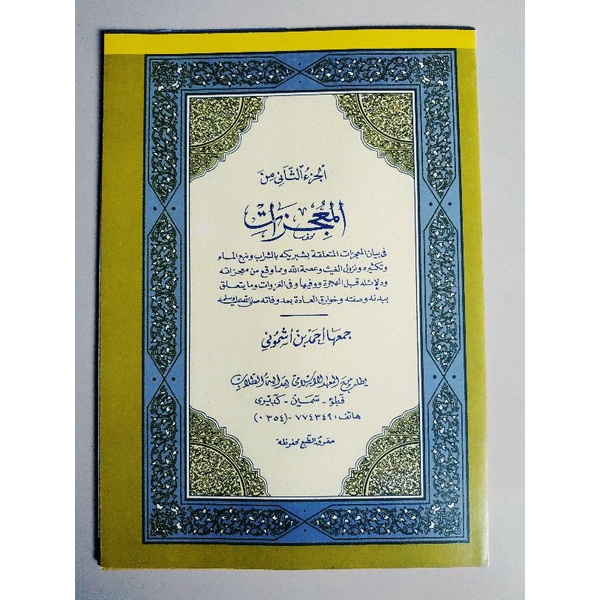 الجزء الثاني من
المعجزات
في بيان المعجزات المتعلقة بتبريكه بالشراب ونبع الماء
وتكثيره ونزول الغيث وعصمة الله وما وقع من معجزاته
ودلائله قبل الهجرة وفيها وفي الغزوات وما يتعلق
ببدنه وصفته وخوارق العادة بعد وفاته صلى الله عليه وسلم
جمعها احمد بن اشموني
يطلب من المعهد الإسلامي هداية الطلاب
فتلؤ - سمبين - كديري
هاتف: ٧٧٤٣٤٩ - (٠٣٥٤)
حقوق الطبع محفوظة